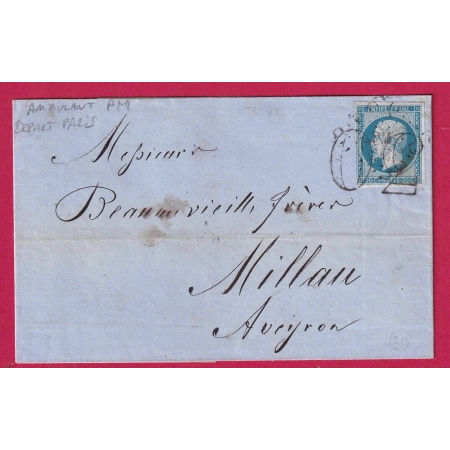 AMBULANT PM
DEPART PARIS
EMPIRE FRANC
Messieurs
Beaumevieille frères
Millau
Aveyron